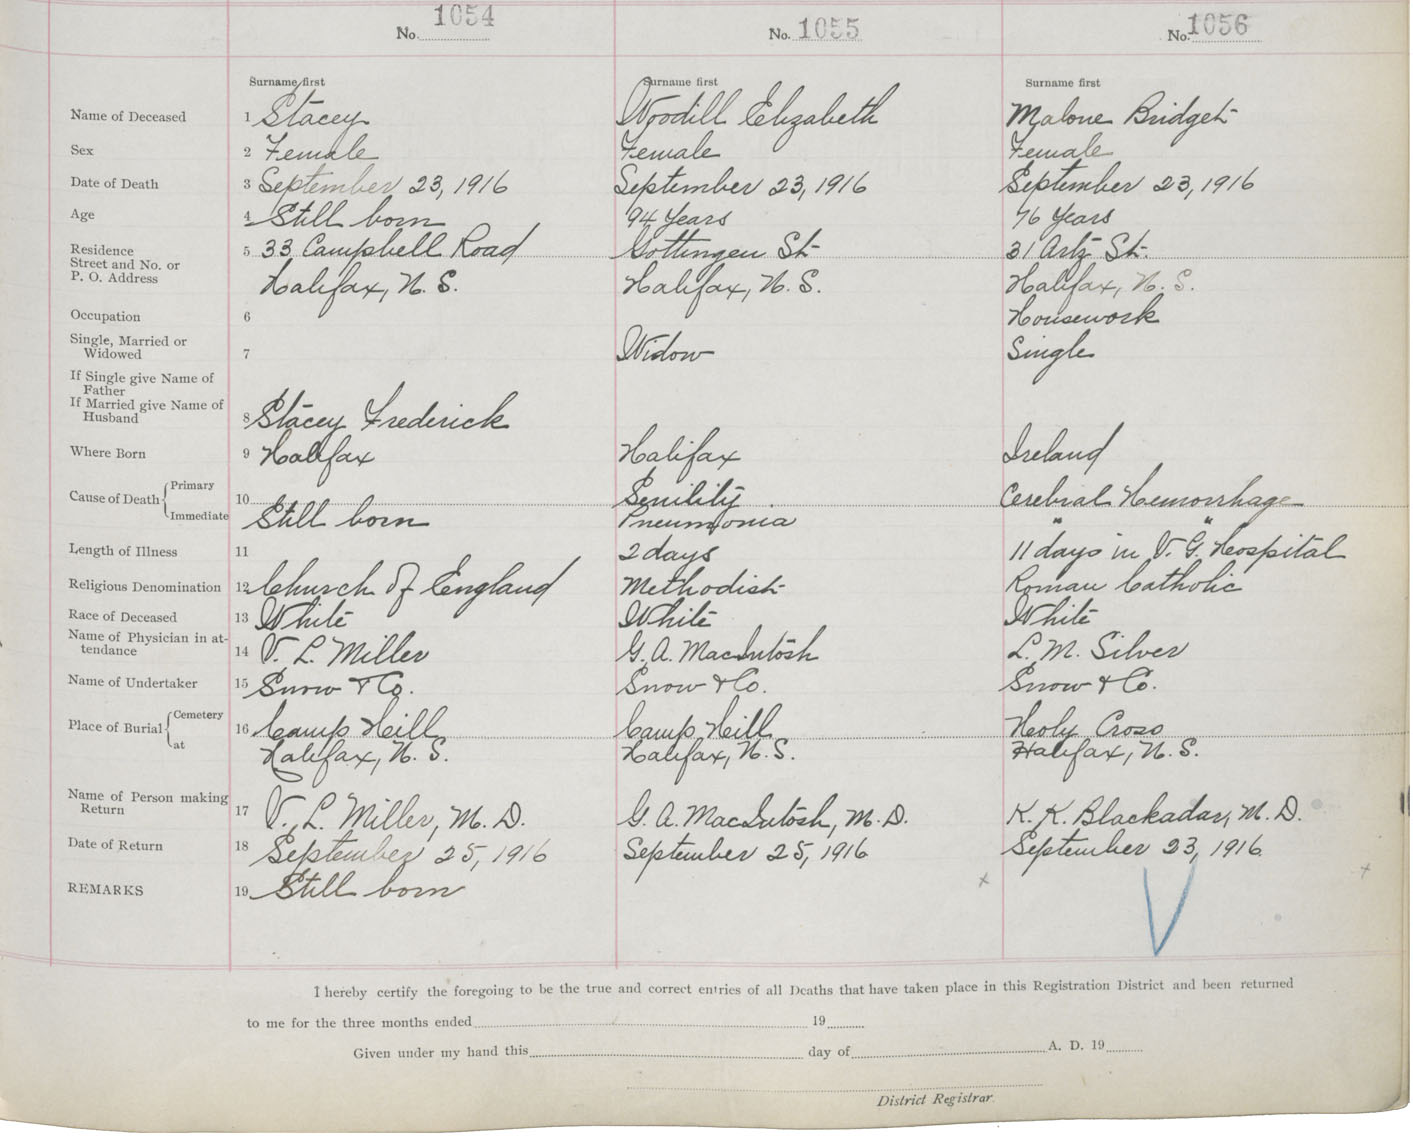 No. 1054 No. 1055 No. 1056
Surname first Surname first Surname first
Name of Deceased 1 Stacey Woodill Elizabeth Malone Bridget
Sex 2 Female Female Female
Date of Death 3 September 23, 1916 September 23, 1916 September 23, 1916
Age 4 Still born 94 Years 76 Years
Residence 5 33 Campbell Road Gottingen St. 31 Artz St.
Street and No. or
P. O. Address Halifax, N. S. Halifax, N. S. Halifax, N. S.
Occupation 6 Housework
Single, Married or
Widowed 7 Widow Single
If Single give Name of
Father
If Married give Name of
Husband 8 Stacey Frederick
Where Born 9 Halifax Halifax Ireland
Cause of Death Primary 10 Senility Cerebral Hemorrhage
Immediate Still born Pneumonia " "
Length of Illness 11 2 days 11 days in V. G. Hospital
Religious Denomination 12 Church of England Methodist Roman Catholic
Race of Deceased 13 White White White
Name of Physician in at-
tendance 14 V. L. Miller G. A. MacIntosh L. M. Silver
Name of Undertaker 15 Snow & Co. Snow & Co. Snow & Co.
Place of Burial Cemetery 16 Camp Hill Camp Hill Holy Cross
at Halifax, N. S. Halifax, N. S. Halifax, N. S.
Name of Person making
Return 17 V. L. Miller, M. D. G. A. MacIntosh, M. D. K. K. Blackadar, M. D.
Date of Return 18 September 25, 1916 September 25, 1916 September 23, 1916
REMARKS 19 Still born
I hereby certify the foregoing to be the true and correct entries of all Deaths that have taken place in this Registration District and been returned
to me for the three months ended 19
Given under my hand this day of A. D. 19
District Registrar.